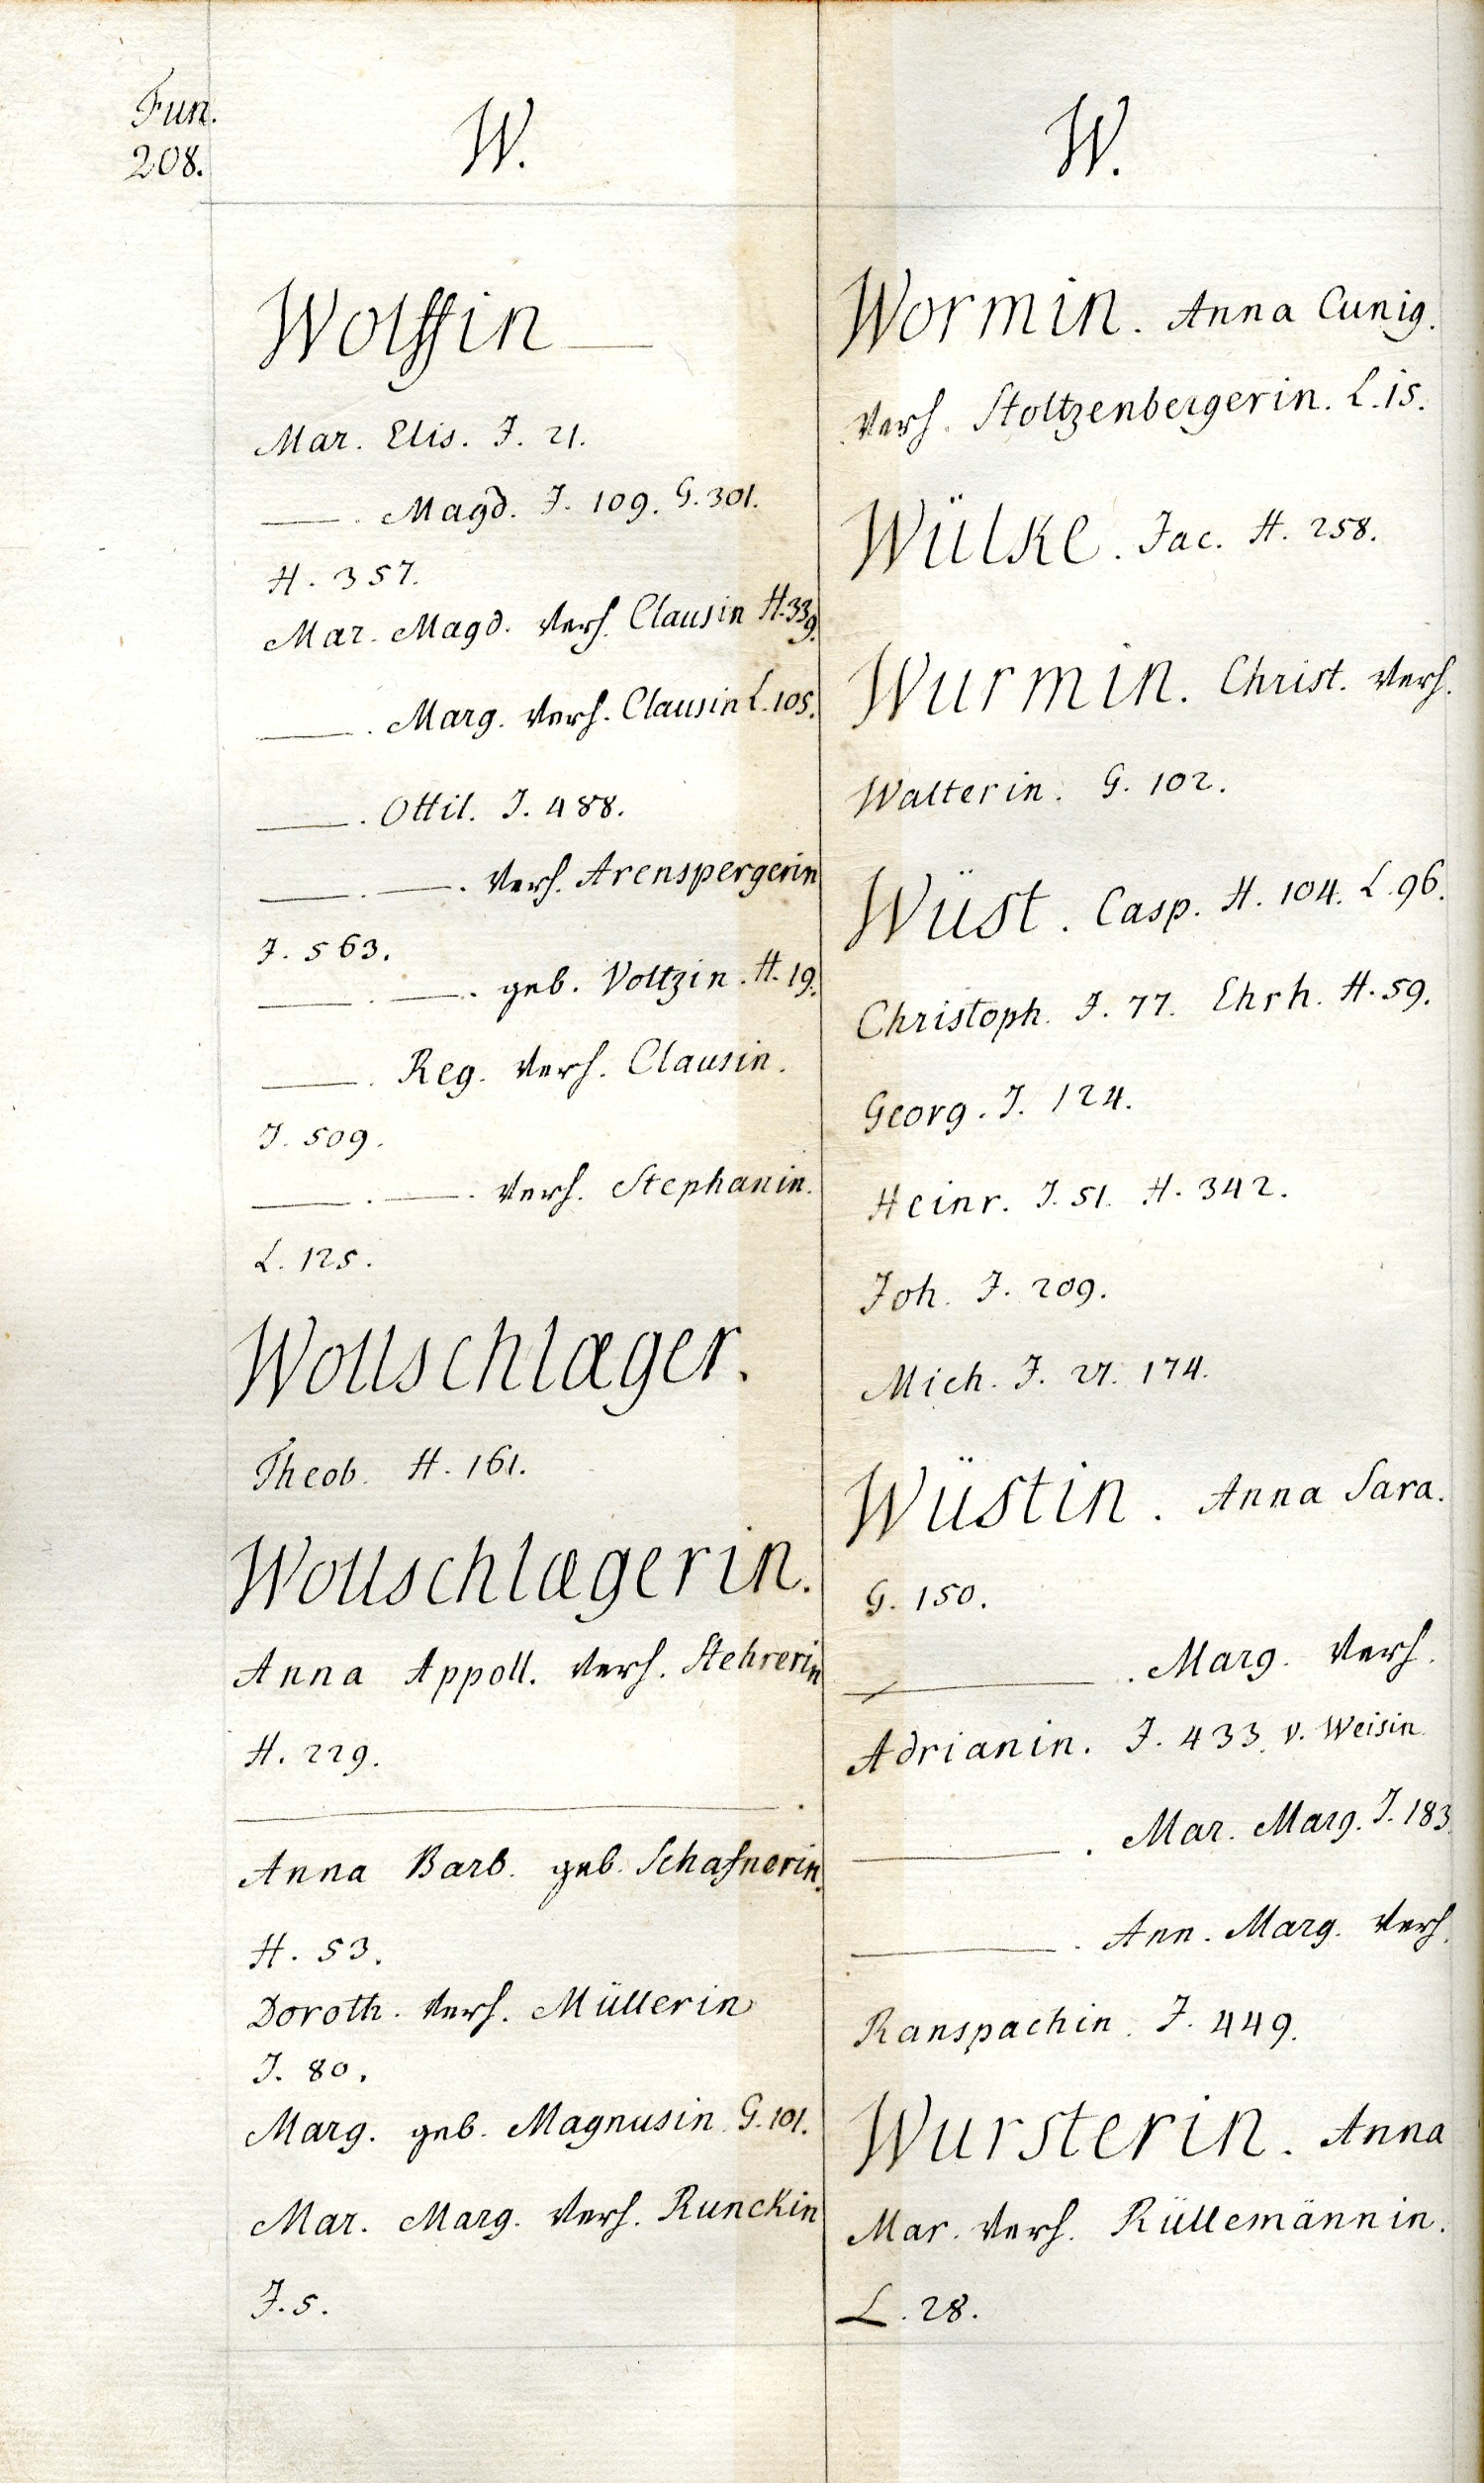 Fun.
208.
W.
Wolffin —
Mar. Elis. J. 21.
—. Magd. J. 109. G. 301.
H. 357.
Mar. Magd. Verh. Clausin H. 339.
—. Marg. Verh. Clausin L. 105.
—. Ottil. J. 488.
—. —. Verh. Arenspergerin
J. 563.
—. —. geb. Voltzin. H. 19.
—. Reg. Verh. Clausin.
J. 509.
—. —. Verh. Stephanin.
L. 125.
Wollschlæger.
Theob. H. 161.
Wollschlægerin.
Anna Appoll. Verh. Stehrerin
H. 229.
—.
Anna Barb. geb. Schafnerin.
H. 53.
Doroth. Verh. Müllerin
J. 80.
Marg. geb. Magnusin G. 101.
Mar. Marg. Verh. Runckin
J. 5.
W.
Wormin. Anna Cunig.
Verh. Stoltzenbergerin. L. 15.
Wülke. Jac. H. 258.
Wurmin. Christ. Verh.
Walterin. G. 102.
Wüst. Casp. H. 104. L. 96.
Christoph. J. 77. Ehrh. H. 59.
Georg. J. 124.
Heinr. J. 51. H. 342.
Joh. J. 209.
Mich. J. 27. 174.
Wüstin. Anna Sara.
G. 150.
—. Marg. Verh.
Adrianin. J. 433. v. Weisin
—. Mar. Marg. J. 183.
—. Ann. Marg. Verh.
Ranspachin. J. 449.
Wursterin. Anna
Mar. Verh. Rüllemännin.
L. 28.